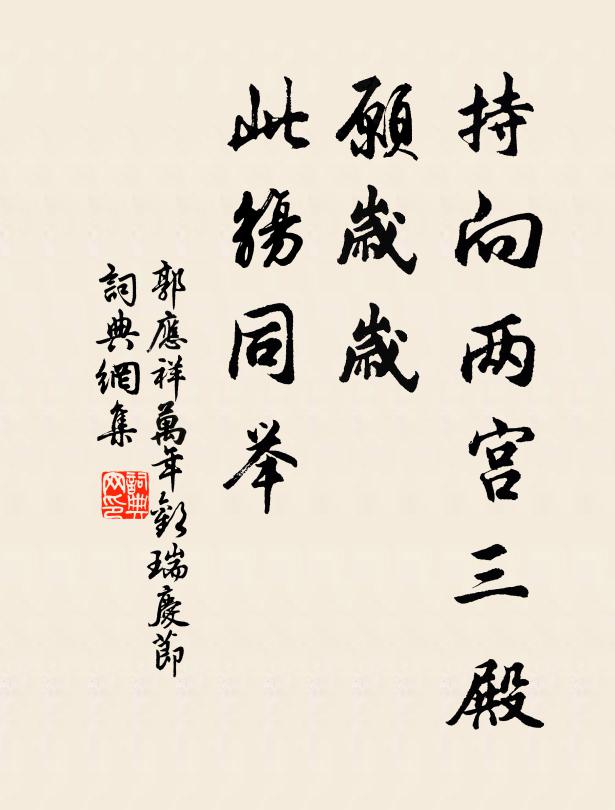 持向两宫三殿
願歲歲
此觴同举
郭應祥萬年歡瑞慶節
詞典網集
詞典網印